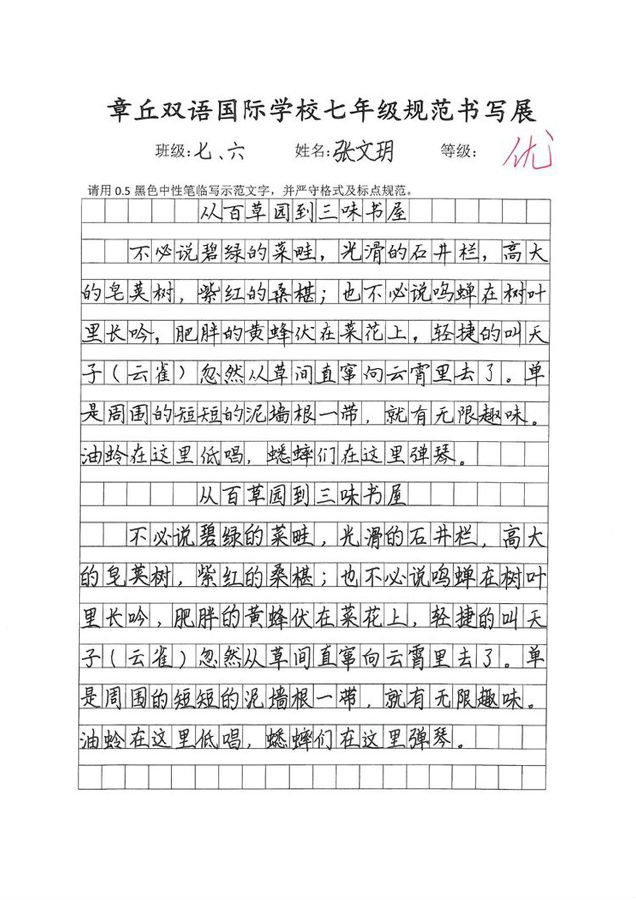 章丘双语国际学校七年级规范书写展
班级:七、六 姓名:张文玥 等级: 优
请用 0.5 黑色中性笔临写示范文字，并严守格式及标点规范。
从百草园到三味书屋
不必说碧绿的菜畦，光滑的石井栏，高大
的皂荚树，紫红的桑椹；也不必说鸣蝉在树叶
里长吟，肥胖的黄蜂伏在菜花上，轻捷的叫天
子（云雀）忽然从草间直窜向云霄里去了。单
是周围的短短的泥墙根一带，就有无限趣味。
油蛉在这里低唱，蟋蟀们在这里弹琴。
从百草园到三味书屋
不必说碧绿的菜畦，光滑的石井栏，高大
的皂荚树，紫红的桑椹；也不必说鸣蝉在树叶
里长吟，肥胖的黄蜂伏在菜花上，轻捷的叫天
子（云雀）忽然从草间直窜向云霄里去了。单
是周围的短短的泥墙根一带，就有无限趣味。
油蛉在这里低唱，蟋蟀们在这里弹琴。